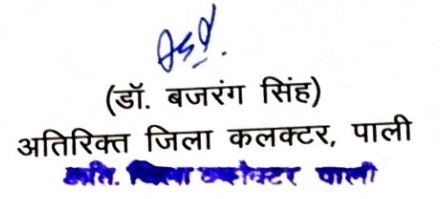 (डॉ. बजरंग सिंह)
अतिरिक्त जिला कलक्टर, पाली
अति. जिला कलैक्टर पाली